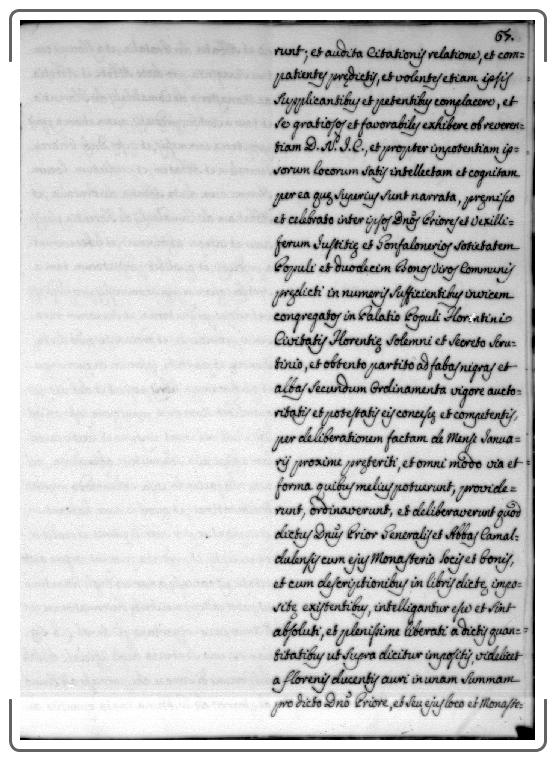 65.
runt; et audita Citationis relatione, et com=
patientes prędictis, et volentes etiam ipsis
Supplicantibus et petentibus complacere, et
se gratiosos et favorabiles exhibere ob reveren=
tiam D. N. I. C., et propter impotentiam ip=
sorum locorum satis intellectam et cognitam
per ea quę Superius sunt narrata, pręmisso
et celebrato inter ipsos Dnos Priores et Vexilli=
ferum Iustitię et Gonfalonerios Sotietatem
Populi et duodecim Bonos Viros Communis
prędicti in numeris Sufficientibus invicem
congregatos in Palatio Populi Florentini
Civitatis Florentię Solemni et Secreto Scru=
tinio, et obtento partito ad fabas nigras et
albas Secundum Ordinamenta vigore aucto=
ritatis et potestatis eis concesę et competentis,
per deliberationem factam de Mense Ianua=
rij proxime pręteriti, et omni modo via et
forma quibus melius potuerunt, provide=
runt, ordinaverunt, et deliberaverunt quod
dictus Dnus Prior Generalis et Abbas Camal=
dulensis cum ejus Monasterio locis et bonis,
et cum descriptionibus in libris dictę impo=
sitę existentibus, intelligantur esse et sint
absoluti, et plenissime liberati a dictis quan=
titatibus ut supra dicitur impositis, videlicet
a florenis ducentis auri in unam Summam
pro dicto Dno Priore, et seu ejus loco et Monaste=